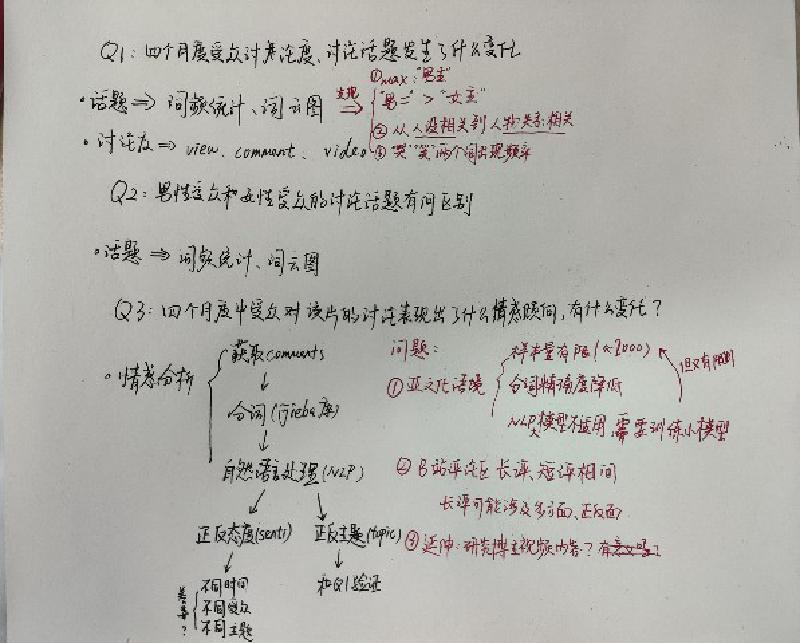 Q1: 四个月度受众讨论度、讨论话题发生了什么变化
·话题 ⇒ 词频统计、词云图
发现 ⇒
①max:"男主"
"男二" > "女主"
②从人设相关到人物关系相关
③"哭""笑"两个词出现频率
·讨论度 ⇒ view、comment、video
Q2: 男性受众和女性受众的讨论话题有何区别
·话题 ⇒ 词频统计、词云图
Q3: 四个月度中受众对该片的讨论表现出了什么情感倾向,有什么变化?
·情感分析
获取comments
↓
分词(jieba库)
↓
自然语言处理(NLP)
正反态度(senti) 正反主题(topic)
↓ ↓
差异?
不同时间
不同受众
不同主题
和Q1验证
问题:
①亚文化语境
样本量有限(≈7000)
分词精确度降低
NLP大模型不适用,需要训练小模型
但又有限制
②B站评论区长评、短评相间
长评可能涉及多方面、正反面.
③延伸:研究博主视频内容?有意义吗?